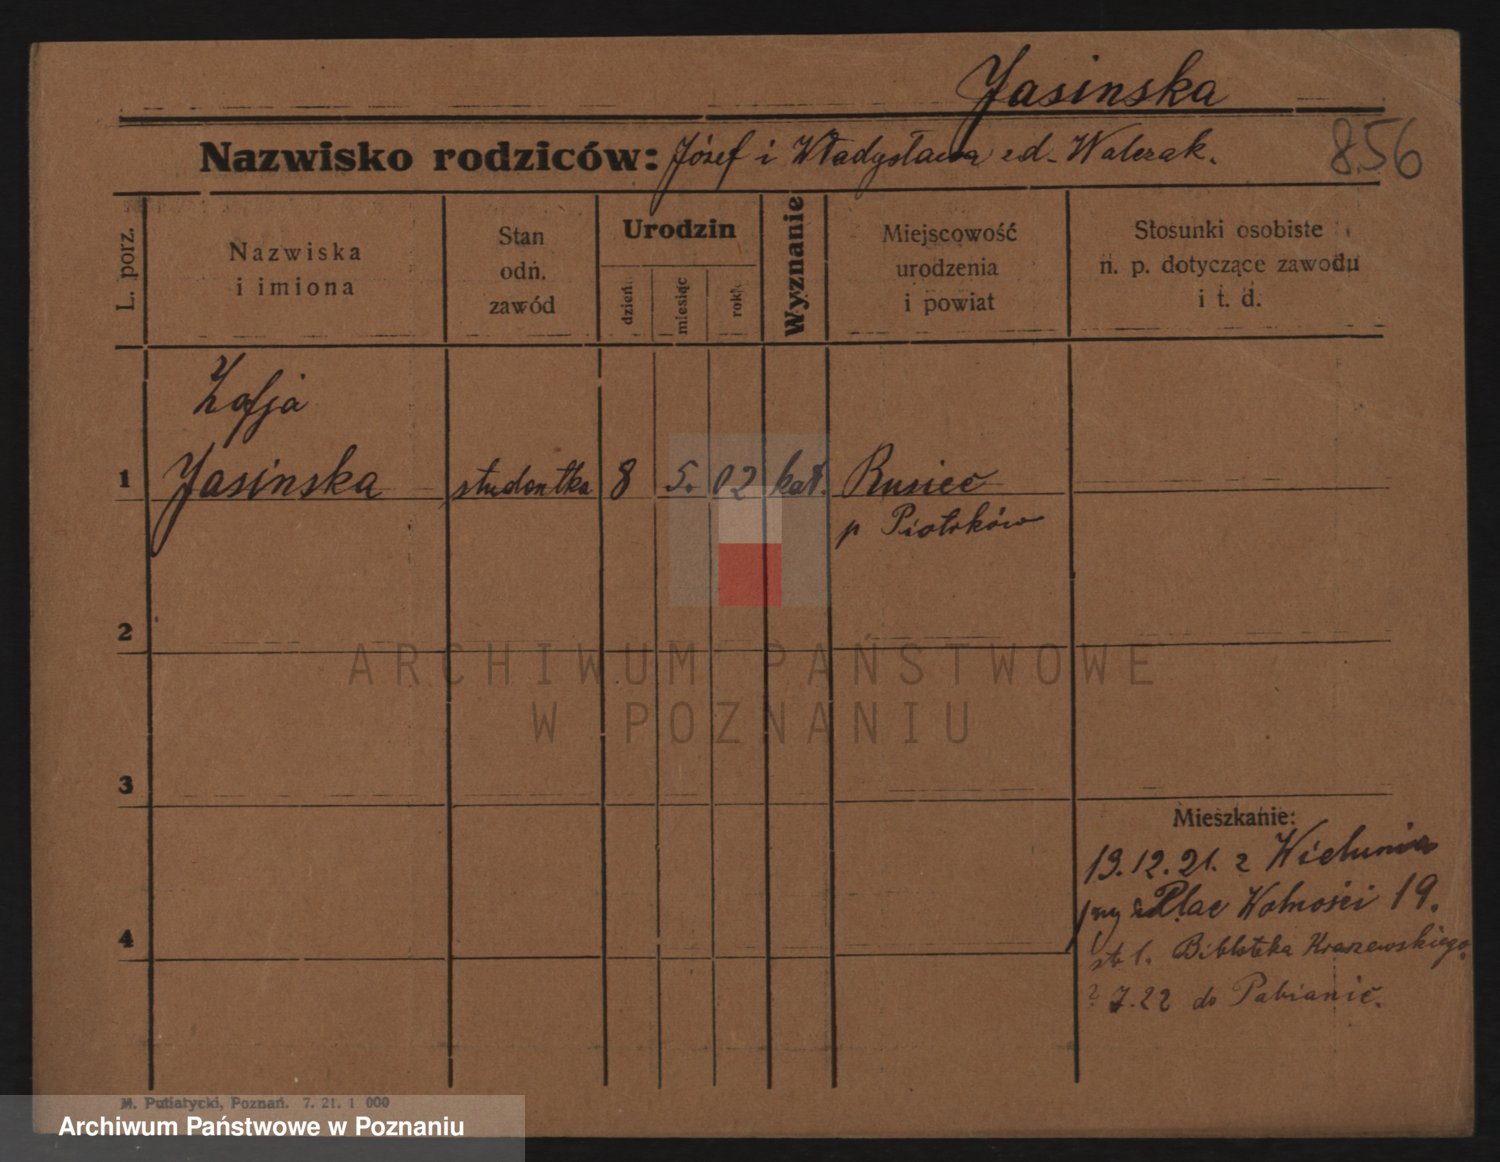 Jasinska
Nazwisko rodziców: Józef i Władysława ed. Walczak.
856
L. porz.
Nazwiska
i imiona
Stan
odn.
zawód
Urodzin
dzień
miesiąc
rok
Wyznanie
Miejscowość
urodzenia
i powiat
Stosunki osobiste
n. p. dotyczące zawodu
i t. d.
Zofja
1 Jasinska studentka 8 5. 02 kat. Rusiec
p Piotrków
2
3
4
Mieszkanie:
19.12.21. z Wielunia
Plac Wolności 19.
st l. Bibloteka Kraszewskiego
7.22 do Pabianic.
M. Putiatycki, Poznań. 7. 21. 1 000
ARCHIWUM PAŃSTWOWE
W POZNANIU
Archiwum Państwowe w Poznaniu